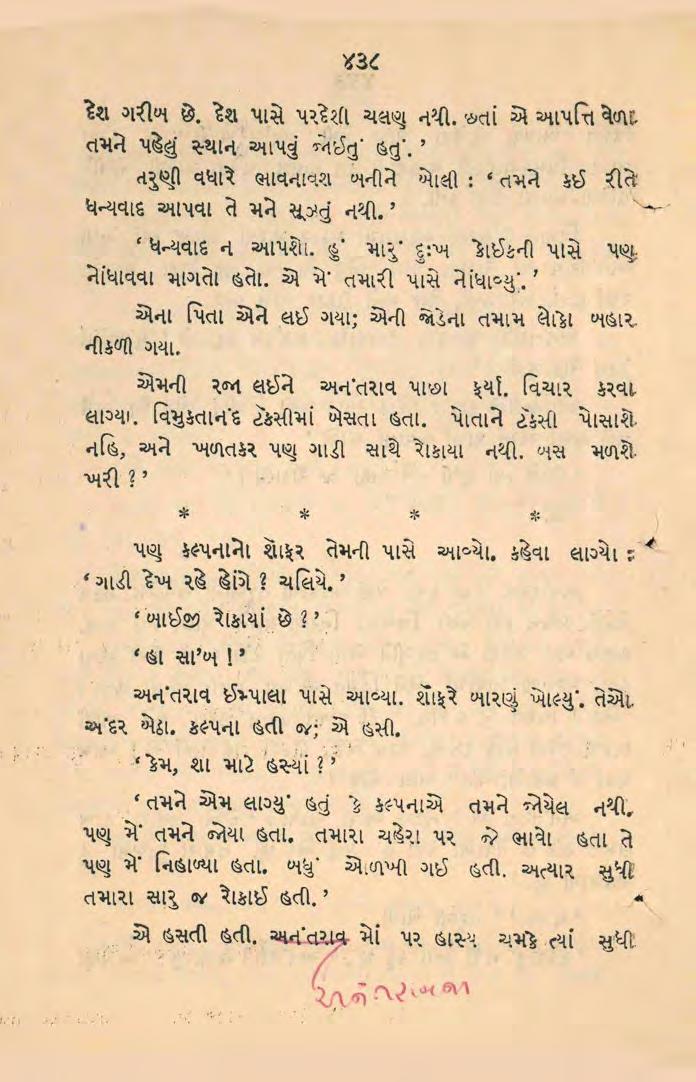 ૪૩૮
દેશ ગરીબ છે. દેશ પાસે પરદેશી ચલણ નથી. છતાં એ આપત્તિ વેળા
તમને પહેલું સ્થાન આપવું જોઈતું હતું.’
તરુણી વધારે ભાવનાવશ બનીને બોલી : ‘તમને કઈ રીતે
ધન્યવાદ આપવા તે મને સૂઝતું નથી.’
‘ધન્યવાદ ન આપશો. હું મારું દુઃખ કોઈકની પાસે પણ
નોંધાવવા માગતો હતો. એ મેં તમારી પાસે નોંધાવ્યું.’
એના પિતા એને લઈ ગયા; એની જોડેના તમામ લોકો બહાર
નીકળી ગયા.
એમની રજા લઈને અનંતરાવ પાછા ફર્યા. વિચાર કરવા
લાગ્યા. વિમુકતાનંદ ટૅકસીમાં બેસતા હતા. પોતાને ટૅકસી પોસાશે
નહિ, અને ખળતકર પણ ગાડી સાથે રોકાયા નથી. બસ મળશે
ખરી ?’
* * * *
પણ કલ્પનાનો શૉફર તેમની પાસે આવ્યો. કહેવા લાગ્યો :
‘ગાડી દેખ રહે હોંગે ? ચલિયે.’
‘બાઈજી રોકાયાં છે ?’
‘હા સા’બ !’
અનંતરાવ ઈમ્પાલા પાસે આવ્યા. શૉફરે બારણું ખોલ્યું. તેઓ
અંદર બેઠા. કલ્પના હતી જ; એ હસી.
‘કેમ, શા માટે હસ્યાં ?’
‘તમને એમ લાગ્યું હતું કે કલ્પનાએ તમને જોયેલ નથી.
પણ મેં તમને જોયા હતા. તમારા ચહેરા પર જે ભાવો હતા તે
પણ મેં નિહાળ્યા હતા. બધું ઓળખી ગઈ હતી. અત્યાર સુધી
તમારા સારુ જ રોકાઈ હતી.’
એ હસતી હતી. અનંતરાવ મોં પર હાસ્ય ચમકે ત્યાં સુધી
અનંતરાવના